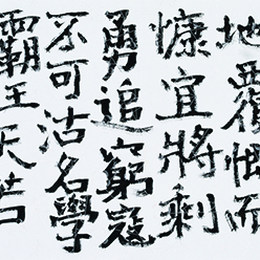 地覆慨而
慷宜將剩
勇追窮寇
不可沽名學
霸王天若